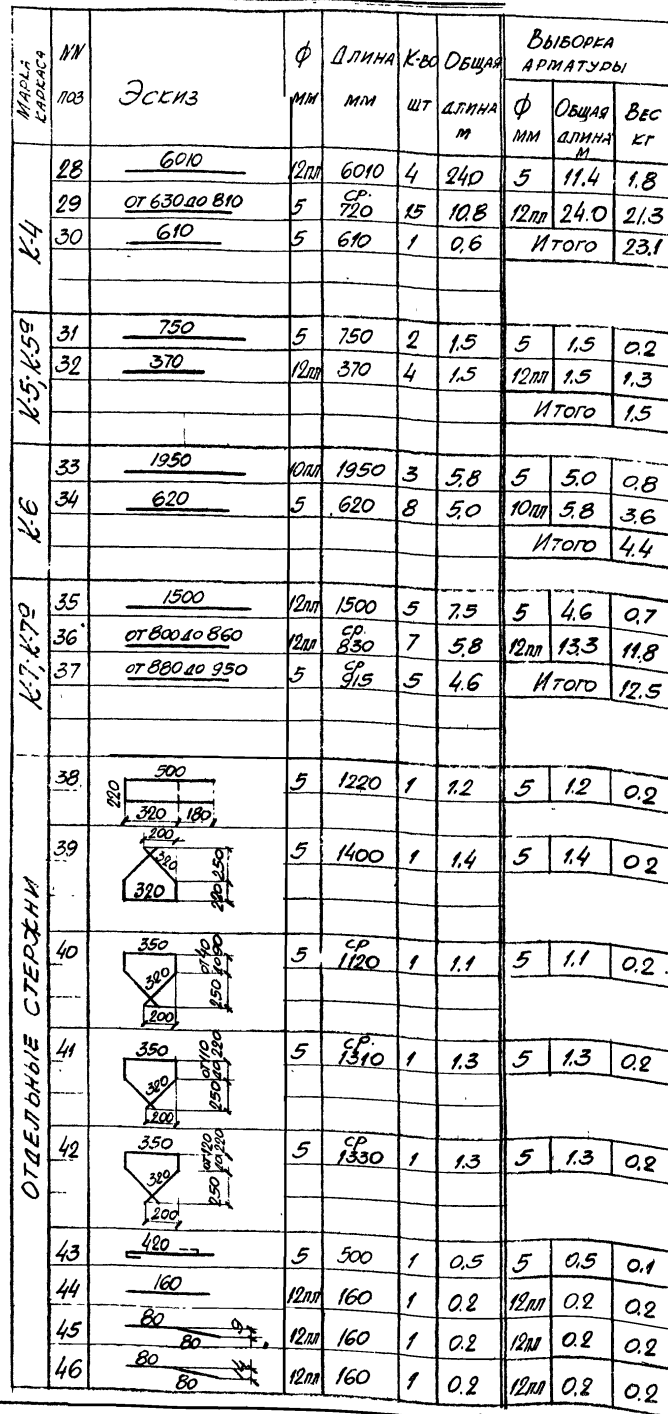 Марка каркаса NN поз Эскиз ф мм Длина мм К-во шт Общая длина м Выборка арматуры
ф мм Общая длина м Вес кг
К-4
28 6010 12пл 6010 4 24,0 5 11.4 1.8
29 от 630 до 810 5 ср. 720 15 10.8 12пл 24.0 21.3
30 610 5 610 1 0,6 Итого 23.1
К-5; К-5а
31 750 5 750 2 1.5 5 1.5 0.2
32 370 12пл 370 4 1.5 12пл 1.5 1.3
Итого 1.5
К-6
33 1950 10пл 1950 3 5,8 5 5.0 0.8
34 620 5 620 8 5,0 10пл 5.8 3.6
Итого 4.4
К-7, К-7а
35 1500 12пл 1500 5 7.5 5 4.6 0.7
36 от 800 до 860 12пл ср. 830 7 5,8 12пл 13.3 11.8
37 от 880 до 950 5 ср 915 5 4.6 Итого 12.5
Отдельные стержни
38 500 220 320 180 5 1220 1 1.2 5 1.2 0.2
39 200 320 320 250 220 5 1400 1 1.4 5 1.4 0.2
40 350 320 200 250 от 40 до 90 5 ср 1120 1 1.1 5 1.1 0.2
41 350 320 200 250 от 110 до 220 5 ср. 1310 1 1.3 5 1.3 0.2
42 350 320 200 250 от 120 до 220 5 ср 1330 1 1.3 5 1.3 0.2
43 420 5 500 1 0,5 5 0.5 0.1
44 160 12пл 160 1 0.2 12пл 0.2 0.2
45 80 80 9 12пл 160 1 0.2 12пл 0.2 0.2
46 80 80 14 12пл 160 1 0.2 12пл 0.2 0.2